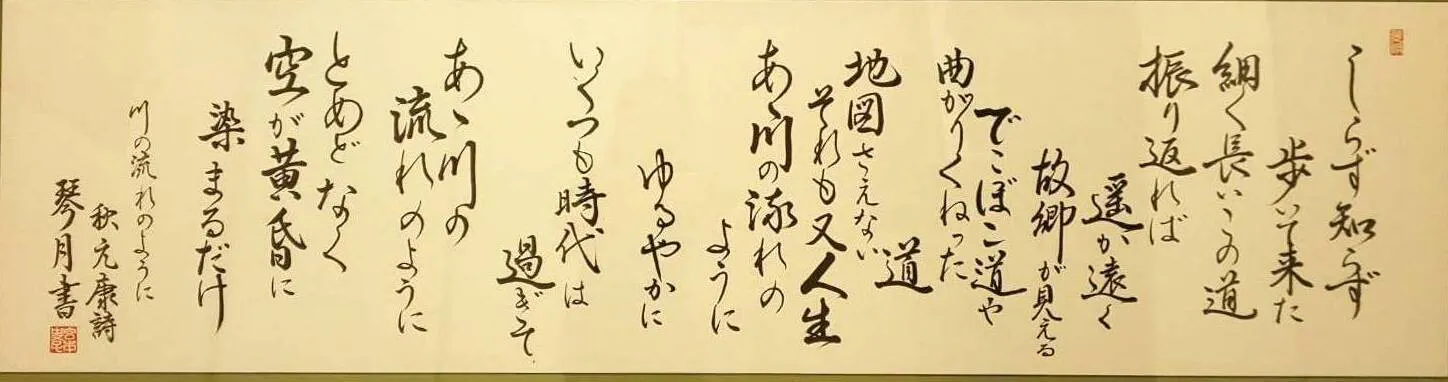 しらず知らず
歩いて来た
細く長いこの道
振り返れば
遥か遠く
故郷が見える
でこぼこ道や
曲がりくねった
道
地図さえない
それも又人生
あゝ川の流れの
ように
ゆるやかに
いくつも時代は
過ぎて
あゝ川の
流れのように
とめどなく
空が黄昏に
染まるだけ
川の流れのように
秋元康詩
琴月書